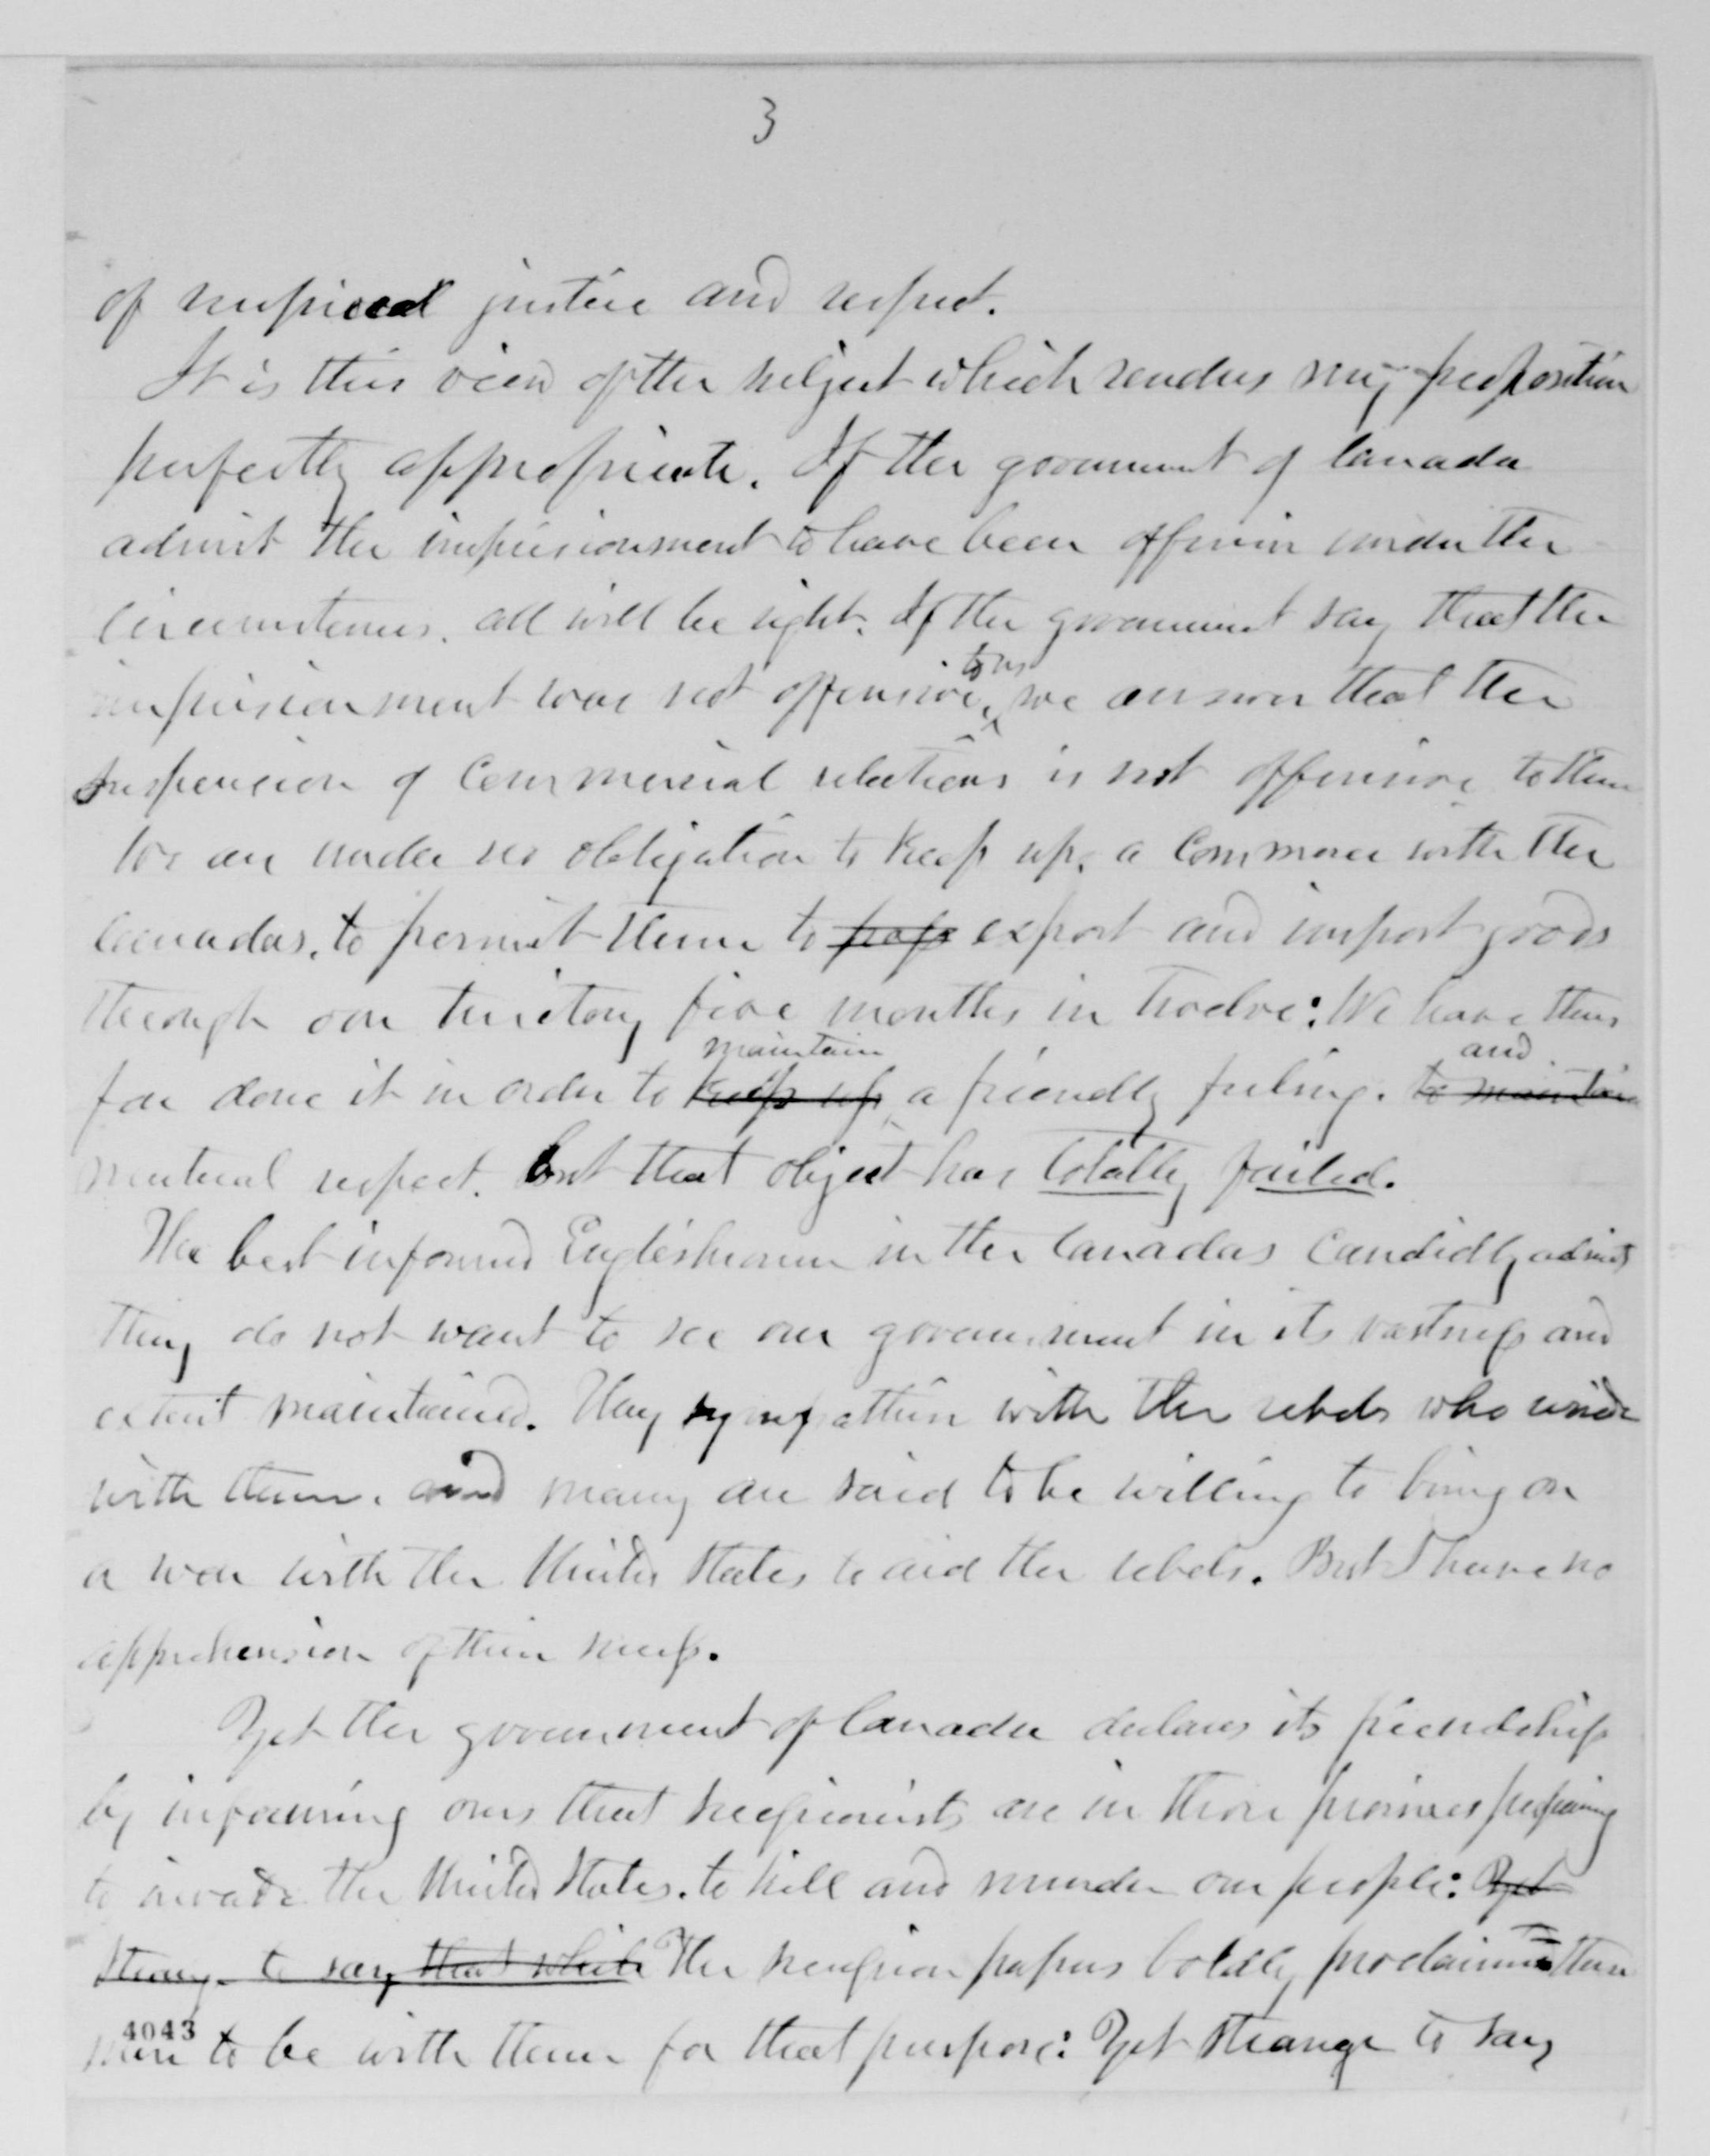 3
of reciprocal justice and respect.
It is this view of the subject which renders my proposition
perfectly appropriate. If the government of Canada
admit the imprisonment to have been offensive under the
circumstances, all will be right. If the government say that the
to us
imprisonment was not offensive, we answer that the
suspension of commercial relations is not offensive to them
We are under no obligation to keep up, a commerce with the
Canadas, to permit them to export and import goods
through our territory five months in twelve: We have thus
maintain and
far done it in order to keep up a friendly feeling. to maintain
mutual respect. but that object has totally failed.
The best informed Englishmen in the Canadas candidly admit
they do not want to see our government in its vastness and
extent maintained. They sympathise with the rebels who reside
with them, and many are said to be willing to bring on
a war with the United States to aid the rebels. But I have no
apprehension of their success.
Yet the government of Canada declares its friendship
by informing ours that secessionists are in those provinces preparing
to invade the United States, to kill and murder our people: Yet
strange to say that while The secession papers boldly proclaim these
4043
men to be with them for that purpose: Yet strange to say